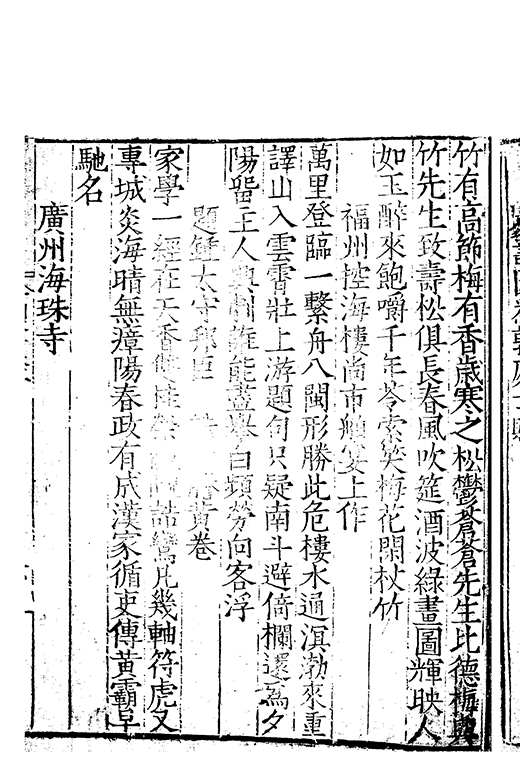 竹有高節梅有香歲寒之松鬱蒼蒼先生比德梅與
竹先生致壽松俱長春風吹筵酒波綠畫圖輝映人
如玉醉來飽嚼千年苓索笑梅花閑杖竹
福州控海樓尚市舶宴上作
萬里登臨一繫舟八閩形勝此危樓水通溟渤來重
譯山入雲霄壯上游題句只疑南斗避倚欄還爲夕
陽畱主人興劇誰能盡舉白頻勞向客浮
題鍾太守 黃卷
家學一經在天香 誥鸞凡幾軸符虎又
專城炎海晴無瘴陽春政有成漢家循吏傳黃霸早
馳名
廣州海珠寺